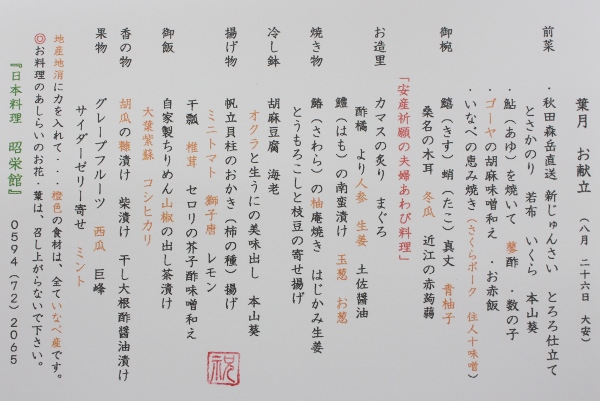 葉月 お献立 (八月 二十六日 大安)
前菜 ・秋田森岳直送 新じゅんさい とろろ仕立て
とさかのり 若布 いくら 本山葵
・鮎(あゆ)を焼いて 蓼酢 ・数の子
・ゴーヤの胡麻味噌和え ・お赤飯
・いなべの恵み焼き(さくらポーク 住人十味噌)
御椀 鱚(きす) 蛸(たこ)真丈 青柚子
桑名の木耳 冬瓜 近江の赤蒟蒻
「安産祈願の夫婦あわび料理」
お造里 カマスの炙り まぐろ
酢橘 より人参 生姜 土佐醤油
鱧(はも)の南蛮漬け 玉葱 お葱
焼き物 鰆(さわら)の柚庵焼き はじかみ生姜
とうもろこしと枝豆の寄せ揚げ
冷し鉢 胡麻豆腐 海老
オクラと生うにの美味出し 本山葵
揚げ物 帆立貝柱のおかき(柿の種)揚げ
ミニトマト 獅子唐 レモン
干瓢 椎茸 セロリの芥子酢味噌和え
御飯 自家製ちりめん山椒の出し茶漬け
大葉紫蘇 コシヒカリ
香の物 胡瓜の糠漬け 柴漬け 干し大根酢醤油漬け
果物 グレープフルーツ 西瓜 巨峰
サイダーゼリー寄せ ミント
地産地消に力を入れて・・・橙色の食材は、全ていなべ産です。
◎お料理のあしらいのお花・葉は、召し上がらないで下さい。
『日本料理 昭栄館』 0594(72)2065
祝